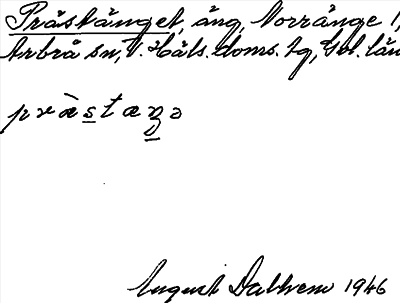 Prästänget, äng, Norränge 1,
Arbrå sn, V. Häls. doms. tg, Gvl. län
præ̀staŋə
August Dalhem 1946